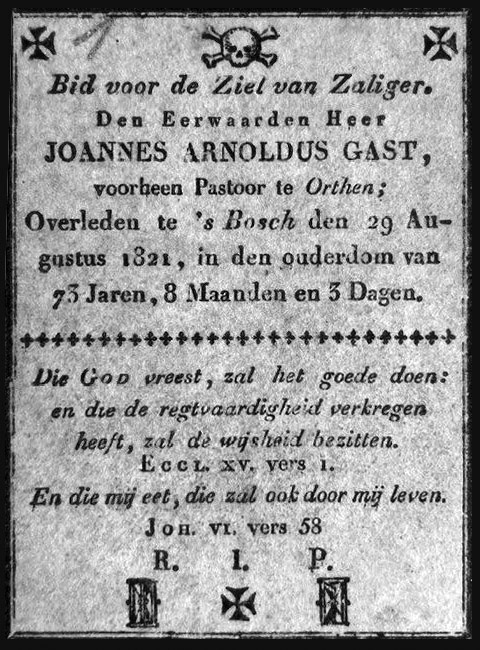 Bid voor de Ziel van Zaliger.
Den Eerwaarden Heer
JOANNES ARNOLDUS GAST,
voorheen Pastoor te Orthen;
Overleden te 's Bosch den 29 Au-
gustus 1821, in den ouderdom van
73 Jaren, 8 Maanden en 3 Dagen.
Die GOD vreest, zal het goede doen:
en die de regtvaardigheid verkregen
heeft, zal de wijsheid bezitten.
ECCL. XV. vers 1.
En die mij eet, die zal ook door mij leven.
JOH. VI. vers 58
R. I. P.